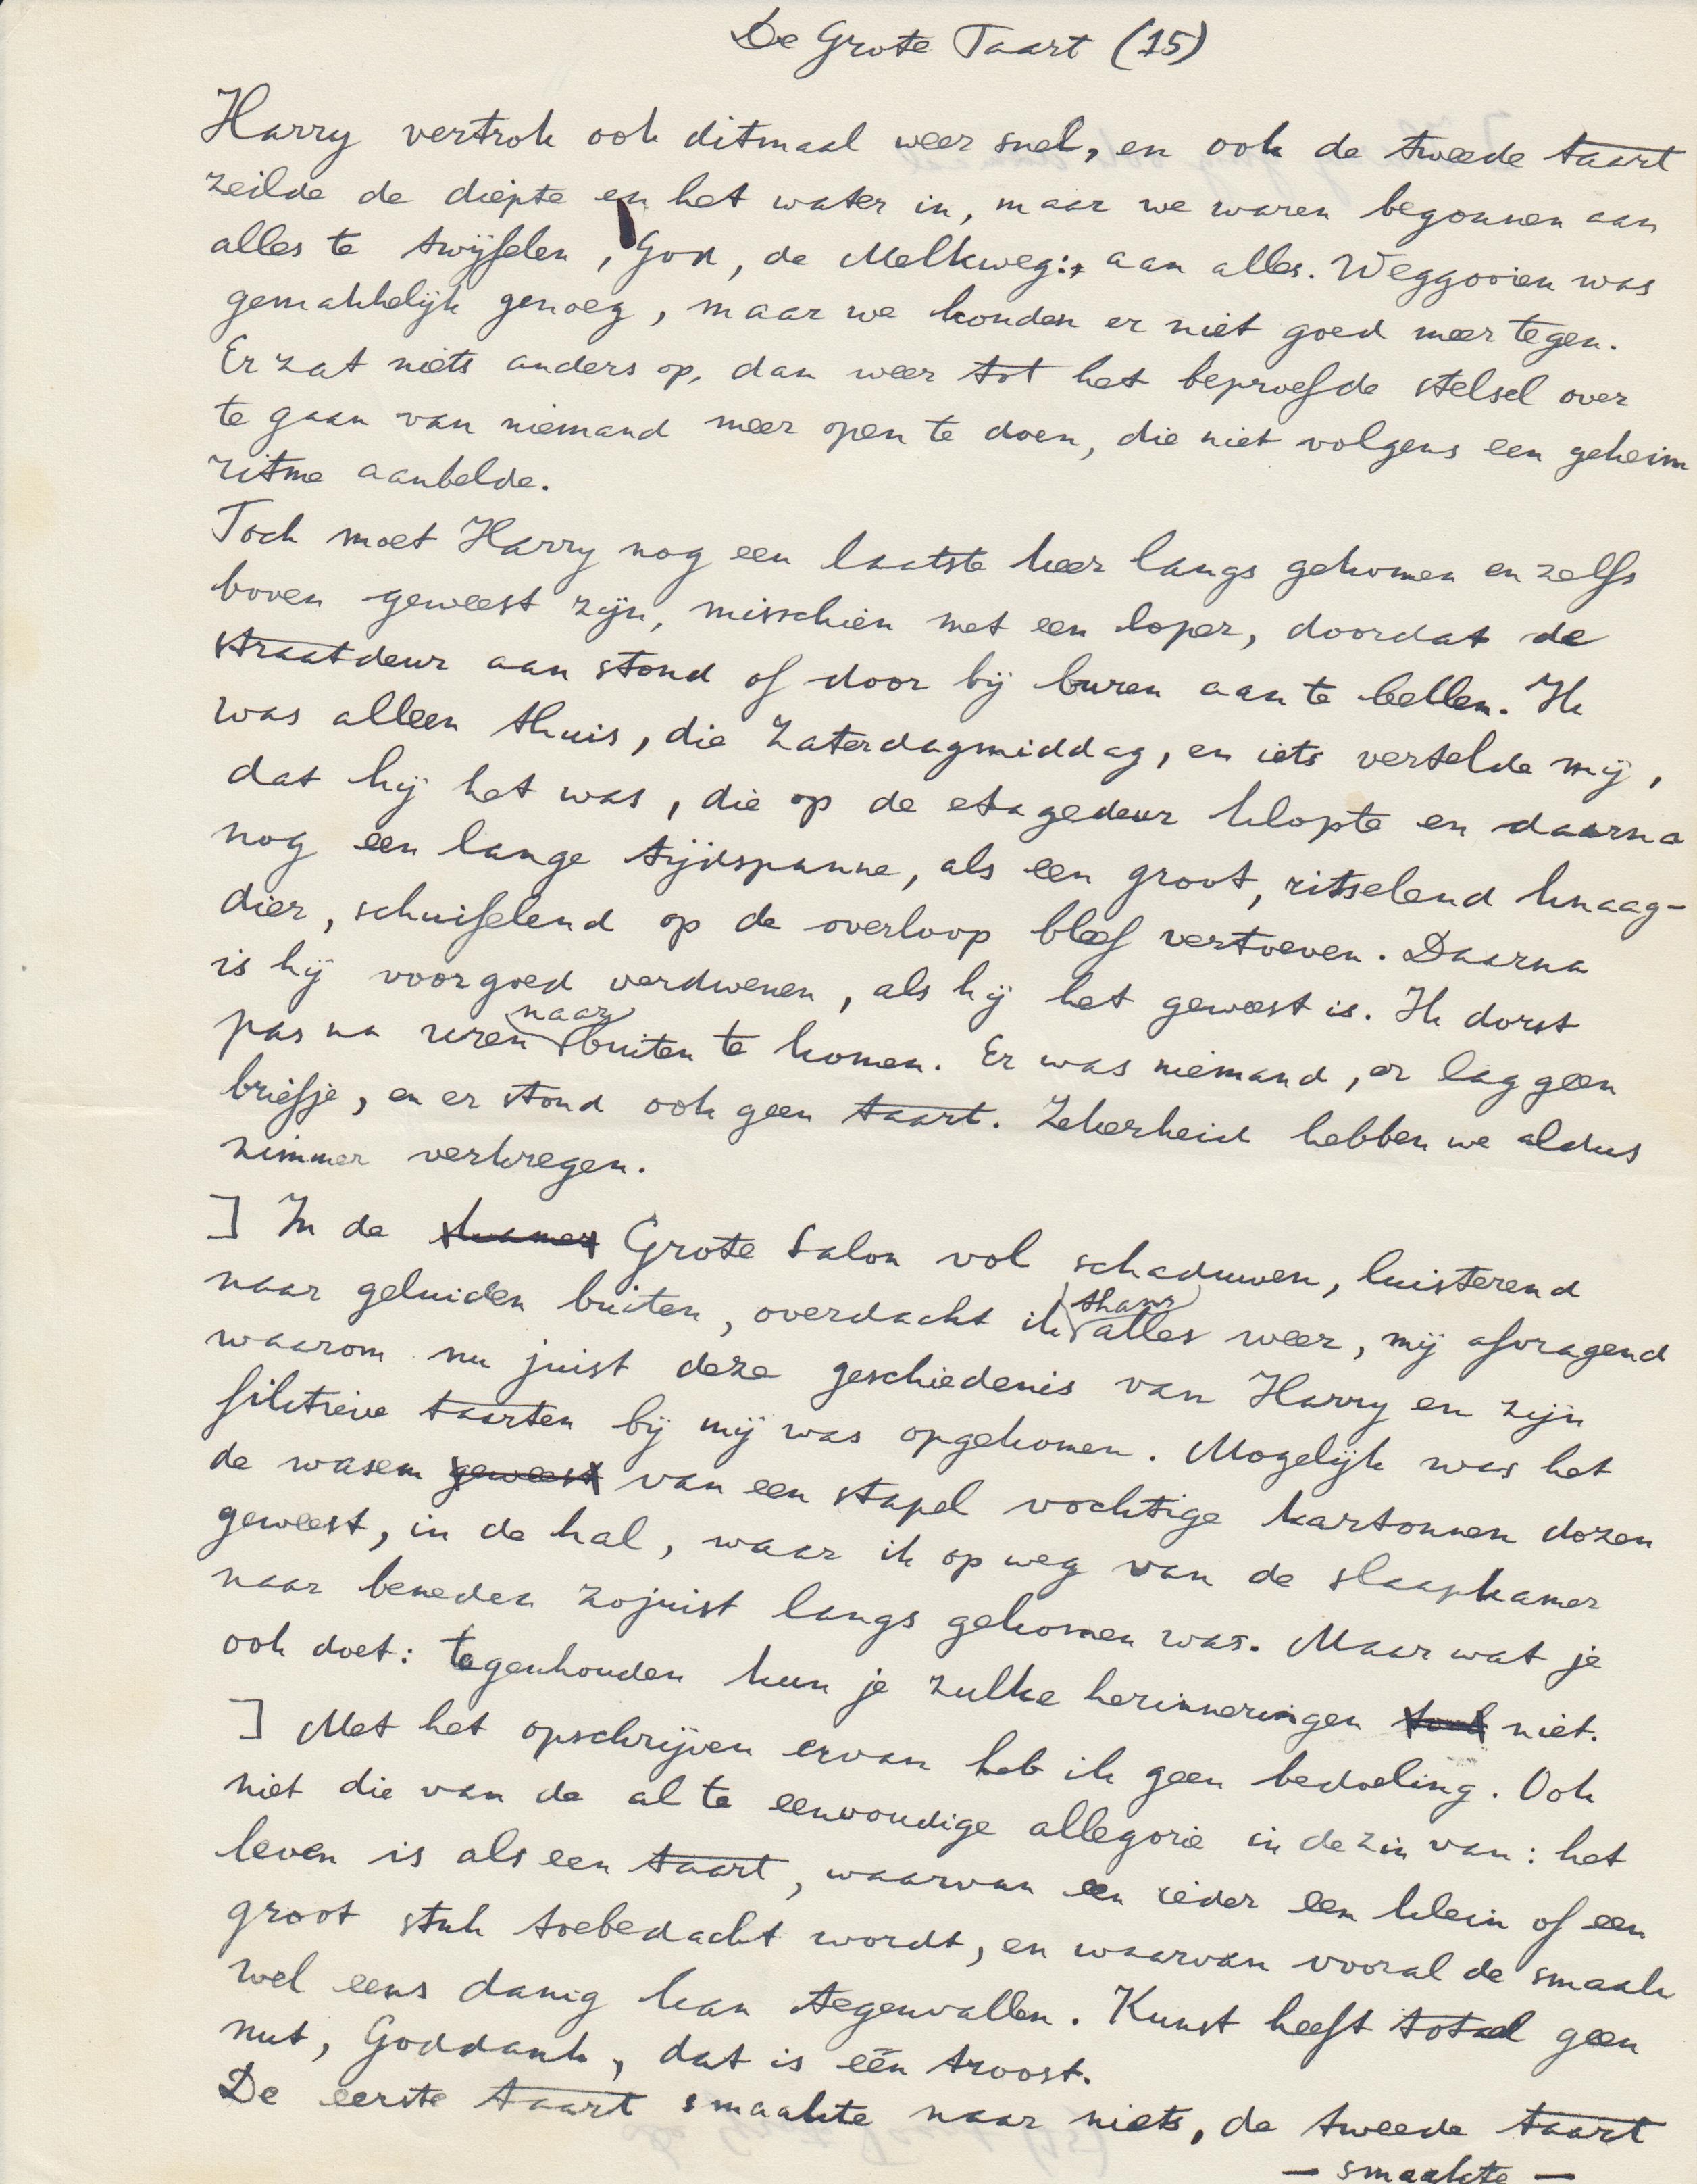 De Grote Taart (15)
Harry vertrok ook ditmaal weer snel, en ook de tweede taart
zeilde de diepte en het water in, maar we waren begonnen aan
alles te twijfelen, God, de Melkweg: aan alles. Weggooien was
gemakkelijk genoeg, maar we konden er niet goed meer tegen.
Er zat niets anders op, dan weer tot het beproefde stelsel over
te gaan van niemand meer open te doen, die niet volgens een geheim
ritme aanbelde.
Toch moet Harry nog een laatste keer langs gekomen en zelfs
boven geweest zijn, misschien met een loper, doordat de
straatdeur aan stond of door bij buren aan te bellen. Ik
was alleen thuis, die Zaterdagmiddag, en iets vertelde mij,
dat hij het was, die op de etagedeur klopte en daarna
nog een lange tijdspanne, als een groot, ritselend knaag-
dier, schuifelend op de overloop bleef vertoeven. Daarna
is hij voorgoed verdwenen, als hij het geweest is. Ik dorst
pas na uren naar buiten te komen. Er was niemand, er lag geen
briefje, en er stond ook geen taart. Zekerheid hebben we aldus
nimmer verkregen.
] In de kamer Grote Salon vol schaduwen, luisterend
naar geluiden buiten, overdacht ik thans alles weer, mij afvragend
waarom nu juist deze geschiedenis van Harry en zijn
fiktieve taarten bij mij was opgekomen. Mogelijk was het
de wasem geweest van een stapel vochtige kartonnen dozen
geweest, in de hal, waar ik op weg van de slaapkamer
naar beneden zojuist langs gekomen was. Maar wat je
ook doet: tegenhouden kun je zulke herinneringen toch niet.
] Met het opschrijven ervan heb ik geen bedoeling. Ook
niet die van de al te eenvoudige allegorie in de zin van: het
leven is als een taart, waarvan een ieder een klein of een
groot stuk toebedacht wordt, en waarvan vooral de smaak
wel eens danig kan tegenvallen. Kunst heeft totaal geen
nut, Goddank, dat is één troost.
De eerste taart smaakte naar niets, de tweede taart
— smaakte —